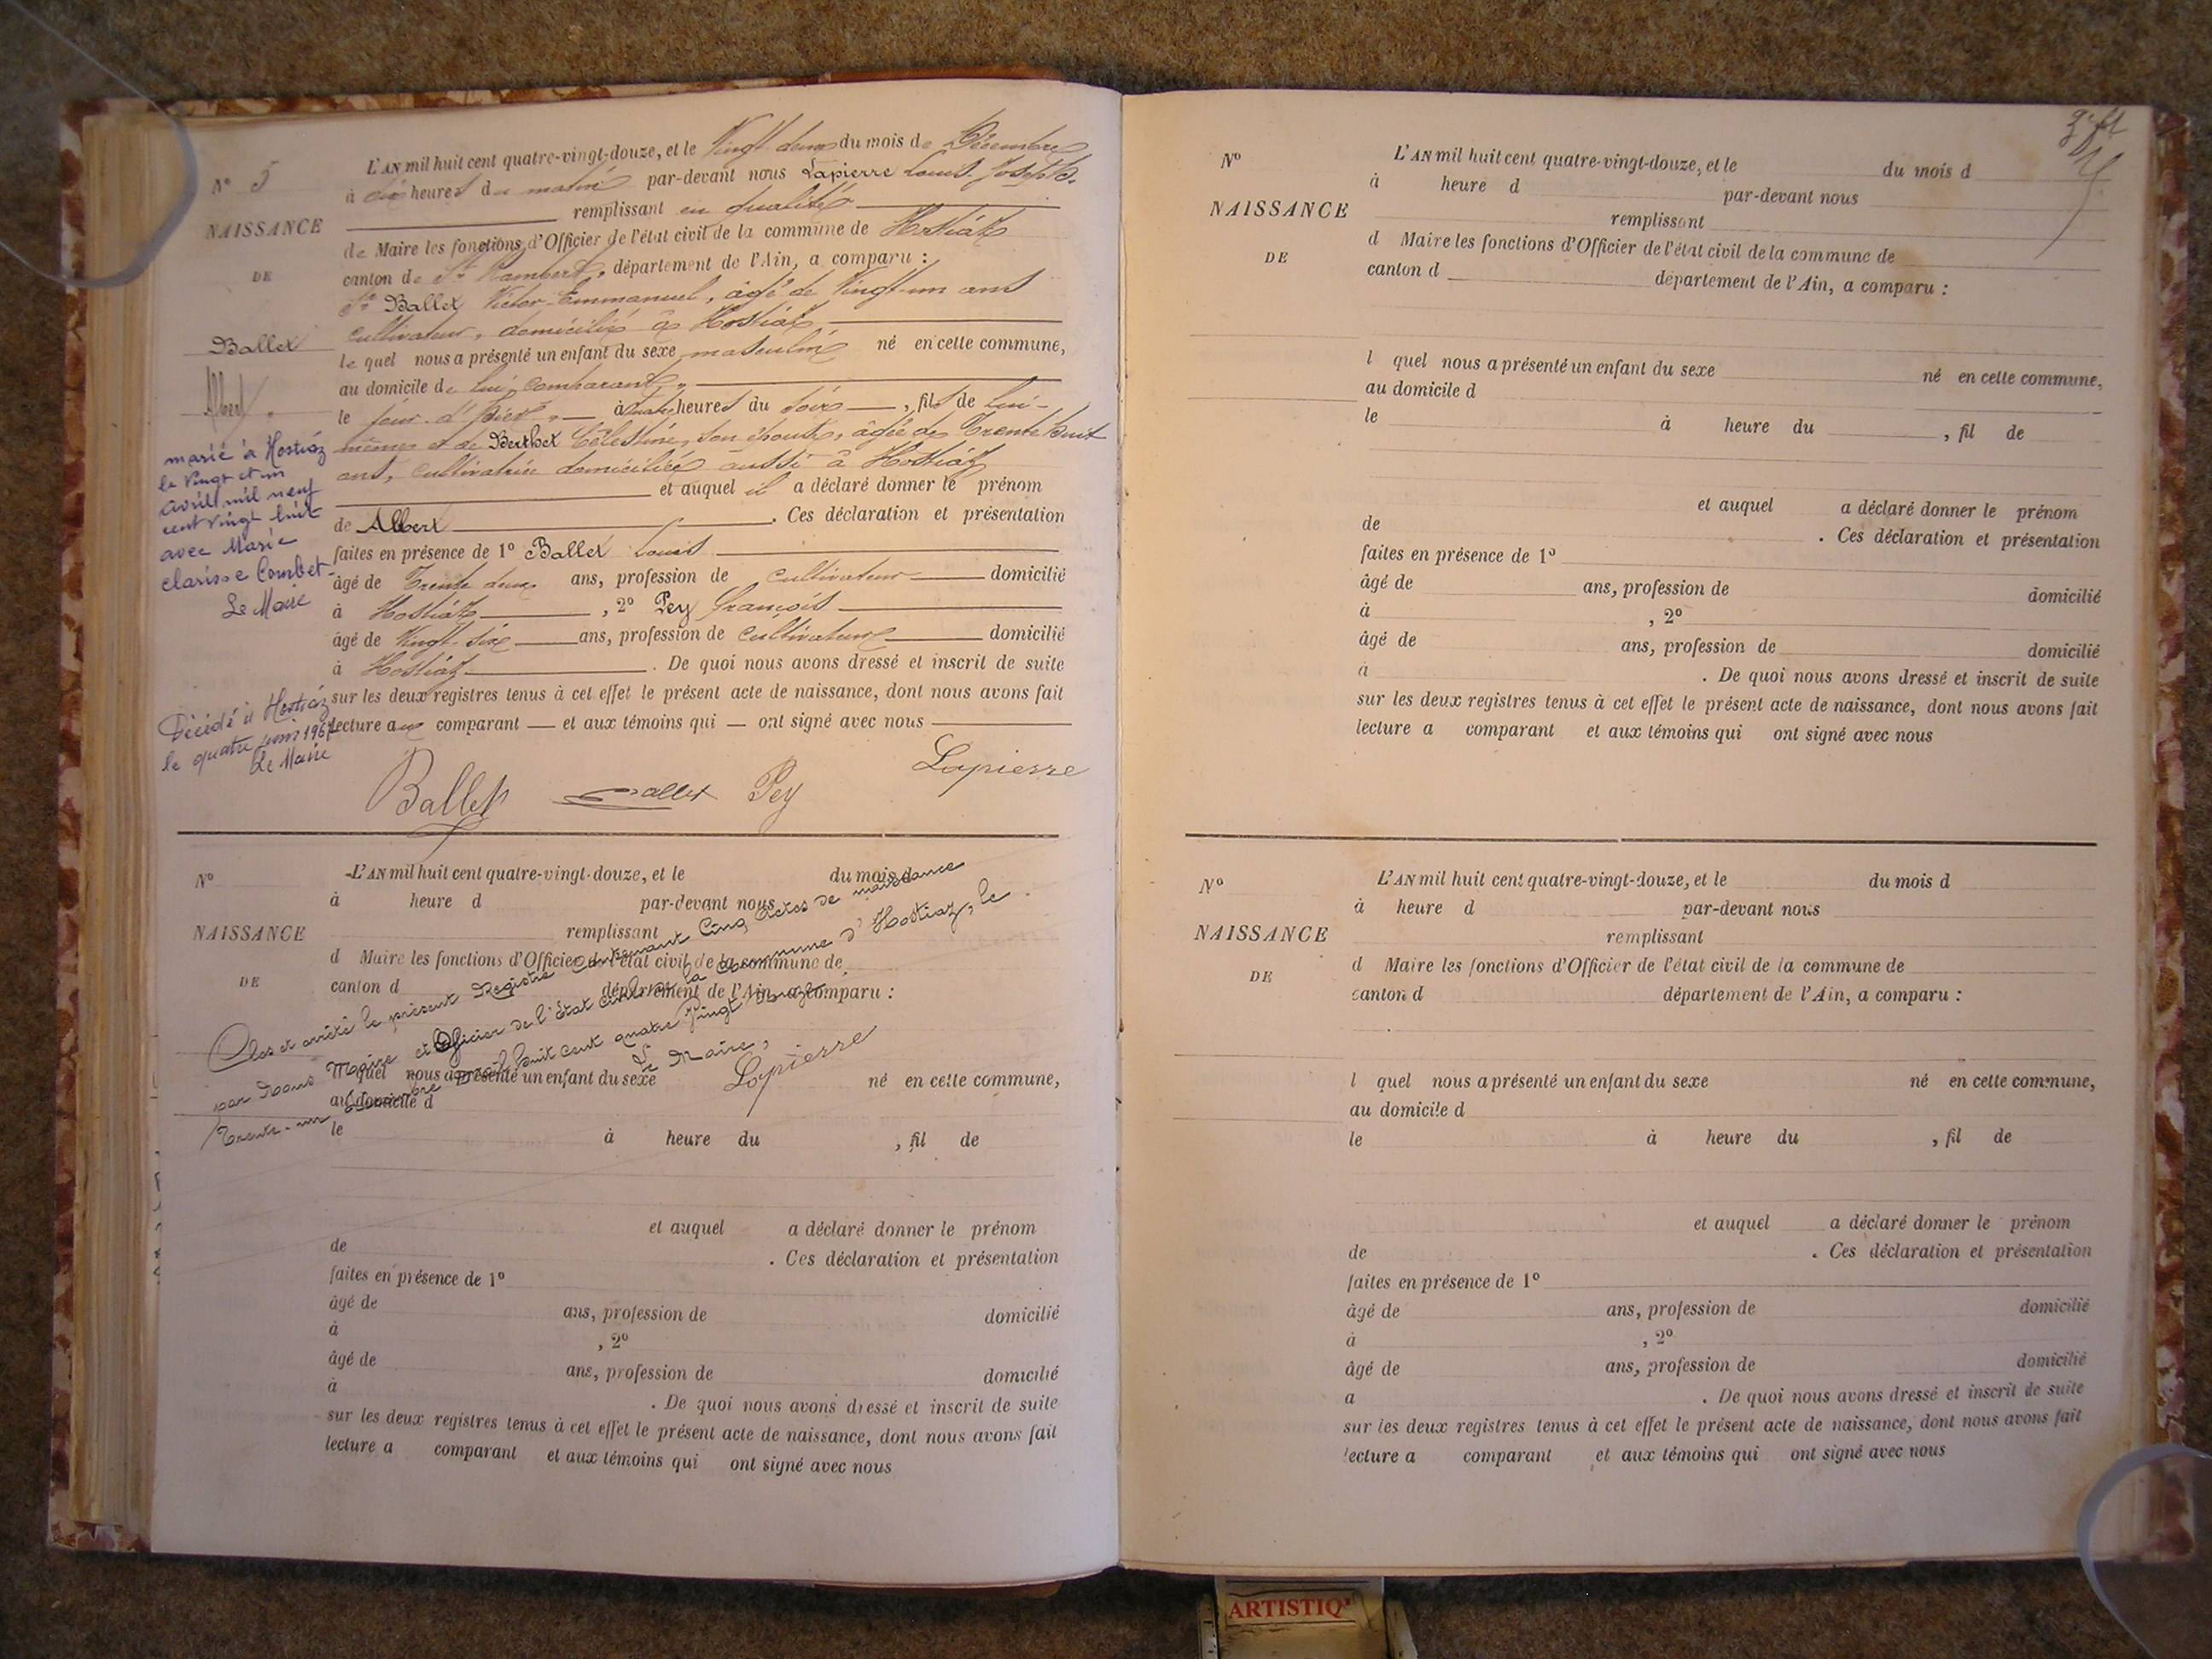 N° 5
NAISSANCE
DE
Ballet
Albert
L'AN mil huit cent quatre-vingt-douze, et le Vingt deux du mois de Décembre
à dix heures du matin par-devant nous Lapierre Louis Joseph
remplissant en qualité
de Maire les fonctions d'Officier de l'état civil de la commune de Hostiaz
canton de St Rambert, département de l'Ain, a comparu :
Sr Ballet Victor Emmanuel, âgé de Vingt-un ans
cultivateur, domicilié à Hostiaz
le quel nous a présenté un enfant du sexe masculin né en cette commune,
au domicile de lui comparant,
le jour d'hier, à quatre heures du soir, fils de lui-
même et de Berthet Célestine, son épouse, âgée de Trente huit
ans, cultivatrice domiciliée aussi à Hostiaz
et auquel il a déclaré donner le prénom
de Albert . Ces déclaration et présentation
faites en présence de 1° Ballet Louis
âgé de Trente deux ans, profession de cultivateur domicilié
à Hostiaz , 2° Pey François
âgé de Vingt-six ans, profession de cultivateur domicilié
à Hostiaz . De quoi nous avons dressé et inscrit de suite
sur les deux registres tenus à cet effet le présent acte de naissance, dont nous avons fait
lecture aux comparant et aux témoins qui ont signé avec nous
Ballet Ballet Pey Lapierre
marié à Hostiaz
le vingt et un
avril mil neuf
cent vingt huit
avec Marie
clarisse Courbet
Le Maire
Décédé à Hostiaz
le quatre juin 1967
Le Maire
N°
NAISSANCE
DE
L'AN mil huit cent quatre-vingt-douze, et le du mois d
à heure d par-devant nous
remplissant
d Maire les fonctions d'Officier de l'état civil de la commune de
canton d département de l'Ain, a comparu :
l quel nous a présenté un enfant du sexe né en cette commune,
au domicile d
le à heure du , fil de
et auquel a déclaré donner le prénom
de . Ces déclaration et présentation
faites en présence de 1°
âgé de ans, profession de domicilié
à , 2°
âgé de ans, profession de domicilié
à . De quoi nous avons dressé et inscrit de suite
sur les deux registres tenus à cet effet le présent acte de naissance, dont nous avons fait
lecture a comparant et aux témoins qui ont signé avec nous
Clos et arrêté le présent Registre contenant Cinq actes de naissance
par Nous Maire et Officier de l'Etat civil de la commune d'Hostiaz, le
Trente-un Décembre mil huit cent quatre Vingt douze.
Le Maire,
Lapierre
N°
NAISSANCE
DE
L'AN mil huit cent quatre-vingt-douze, et le du mois d
à heure d par-devant nous
remplissant
d Maire les fonctions d'Officier de l'état civil de la commune de
canton d département de l'Ain, a comparu :
l quel nous a présenté un enfant du sexe né en cette commune,
au domicile d
le à heure du , fil de
et auquel a déclaré donner le prénom
de . Ces déclaration et présentation
faites en présence de 1°
âgé de ans, profession de domicilié
à , 2°
âgé de ans, profession de domicilié
à . De quoi nous avons dressé et inscrit de suite
sur les deux registres tenus à cet effet le présent acte de naissance, dont nous avons fait
lecture a comparant et aux témoins qui ont signé avec nous
N°
NAISSANCE
DE
L'AN mil huit cent quatre-vingt-douze, et le du mois d
à heure d par-devant nous
remplissant
d Maire les fonctions d'Officier de l'état civil de la commune de
canton d département de l'Ain, a comparu :
l quel nous a présenté un enfant du sexe né en cette commune,
au domicile d
le à heure du , fil de
et auquel a déclaré donner le prénom
de . Ces déclaration et présentation
faites en présence de 1°
âgé de ans, profession de domicilié
à , 2°
âgé de ans, profession de domicilié
a . De quoi nous avons dressé et inscrit de suite
sur les deux registres tenus à cet effet le présent acte de naissance, dont nous avons fait
lecture a comparant et aux témoins qui ont signé avec nous
ARTISTIQ